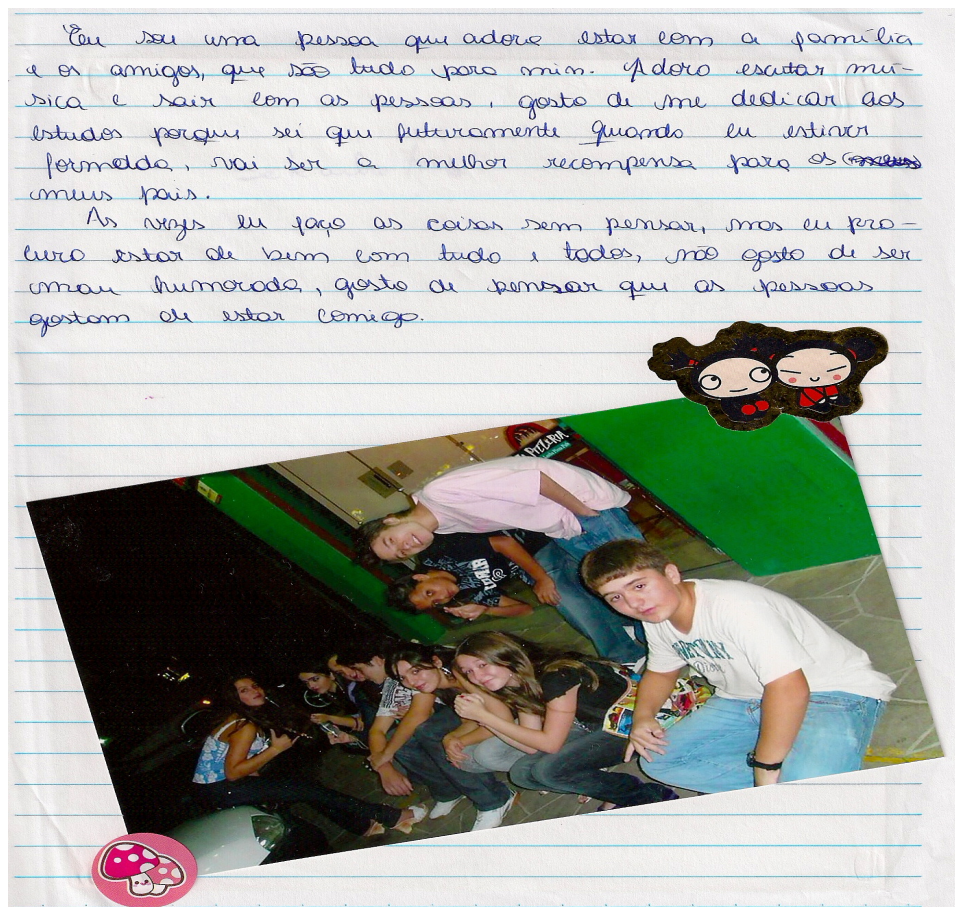 Eu sou uma pessoa que adora estar com a família
e os amigos, que são tudo para min. Adoro escutar mú-
sica e sair com as pessoas, gosto de me dedicar aos
estudos porque sei que futuramente quando eu estiver
formada, vai ser a melhor recompensa para os meus
meus pais.
As vezes eu faço as coisas sem pensar, mas eu pro-
curo estar de bem com tudo e todos, não gosto de ser
mau humorada, gosto de pensar que as pessoas
gostam de estar comigo.
PIZZERIA